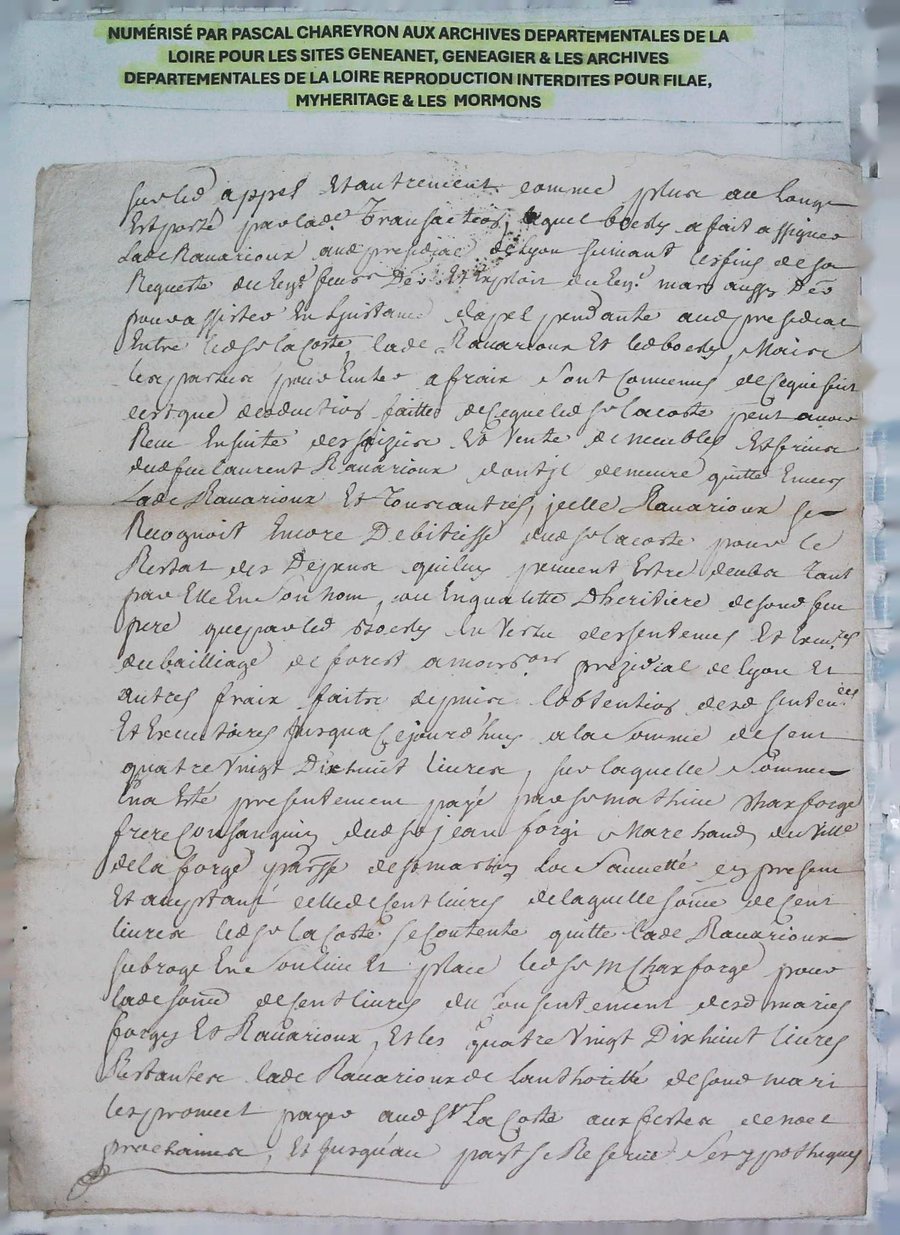 NUMÉRISÉ PAR PASCAL CHAREYRON AUX ARCHIVES DEPARTEMENTALES DE LA
LOIRE POUR LES SITES GENEANET, GENEAGIER & LES ARCHIVES
DEPARTEMENTALES DE LA LOIRE REPRODUCTION INTERDITES POUR FILAE,
MYHERITAGE & LES MORMONS
sur led appel Et autrement comme plus au Long
Est porté par lade Transaction, auquel a fait assigner
Lade Ravarioux aud presidial de Lyon suivant les fins de sa
Requeste du Et Exploit du mars aussy
pour assister En Linstance dapel pendante aud presidial
Entre led sr lacoste, lade Ravarioux Et led Mais
les parties pour Eviter a fraix sont Convenus de ce que suit
cest que deduction faitte de ce que led sr lacoste peut avoir
Receu Ensuitte des saizies Et Vente de meubles Et fruits
dud feu laurent Ravarioux dont jl demeure quitte Envers
Lade Ravarioux Et Tous autres, jcelle Ravarioux se
Recognoit Encore Debitrisse dud sr lacoste pour le
Restat des Depens quiluy peuvent Estre deubs Tant
par Elle En son nom, ou En qualitté Dheritiere de sond feu
pere que par led En Vertu des sentences Et
du bailliage de forest a presidial de Lyon Et
autres fraix faits depuis lobtention desd sentences
Et Executoires Jusqua cejourdhuy a la Somme de Cent
quatre Vingt Dix huit Livres, sur laquelle Somme
En a Esté presentement payé par sr mathieu charforge
frere Consanguin dud sr jean forge Marchand du Ville
de la forge parsse de st martin La Sauvetté cy present
Et aceptant celle de Cent livres de laquelle some de Cent
livres led sr la Coste se Contente quitte lade Ravarioux
subroge En son lieu Et place led sr M Charforge pour
lade some de Cent livres du Consentement desd maries
forges Et Ravarioux, Et les quatre Vingt Dix huit livres
Restantes lade Ravarioux de Lauthoritté de sond mari
les promet payer aud sr La Coste aux festes de noel
prochaines, Et Jusquau payt se Reserve Ses ypotheques